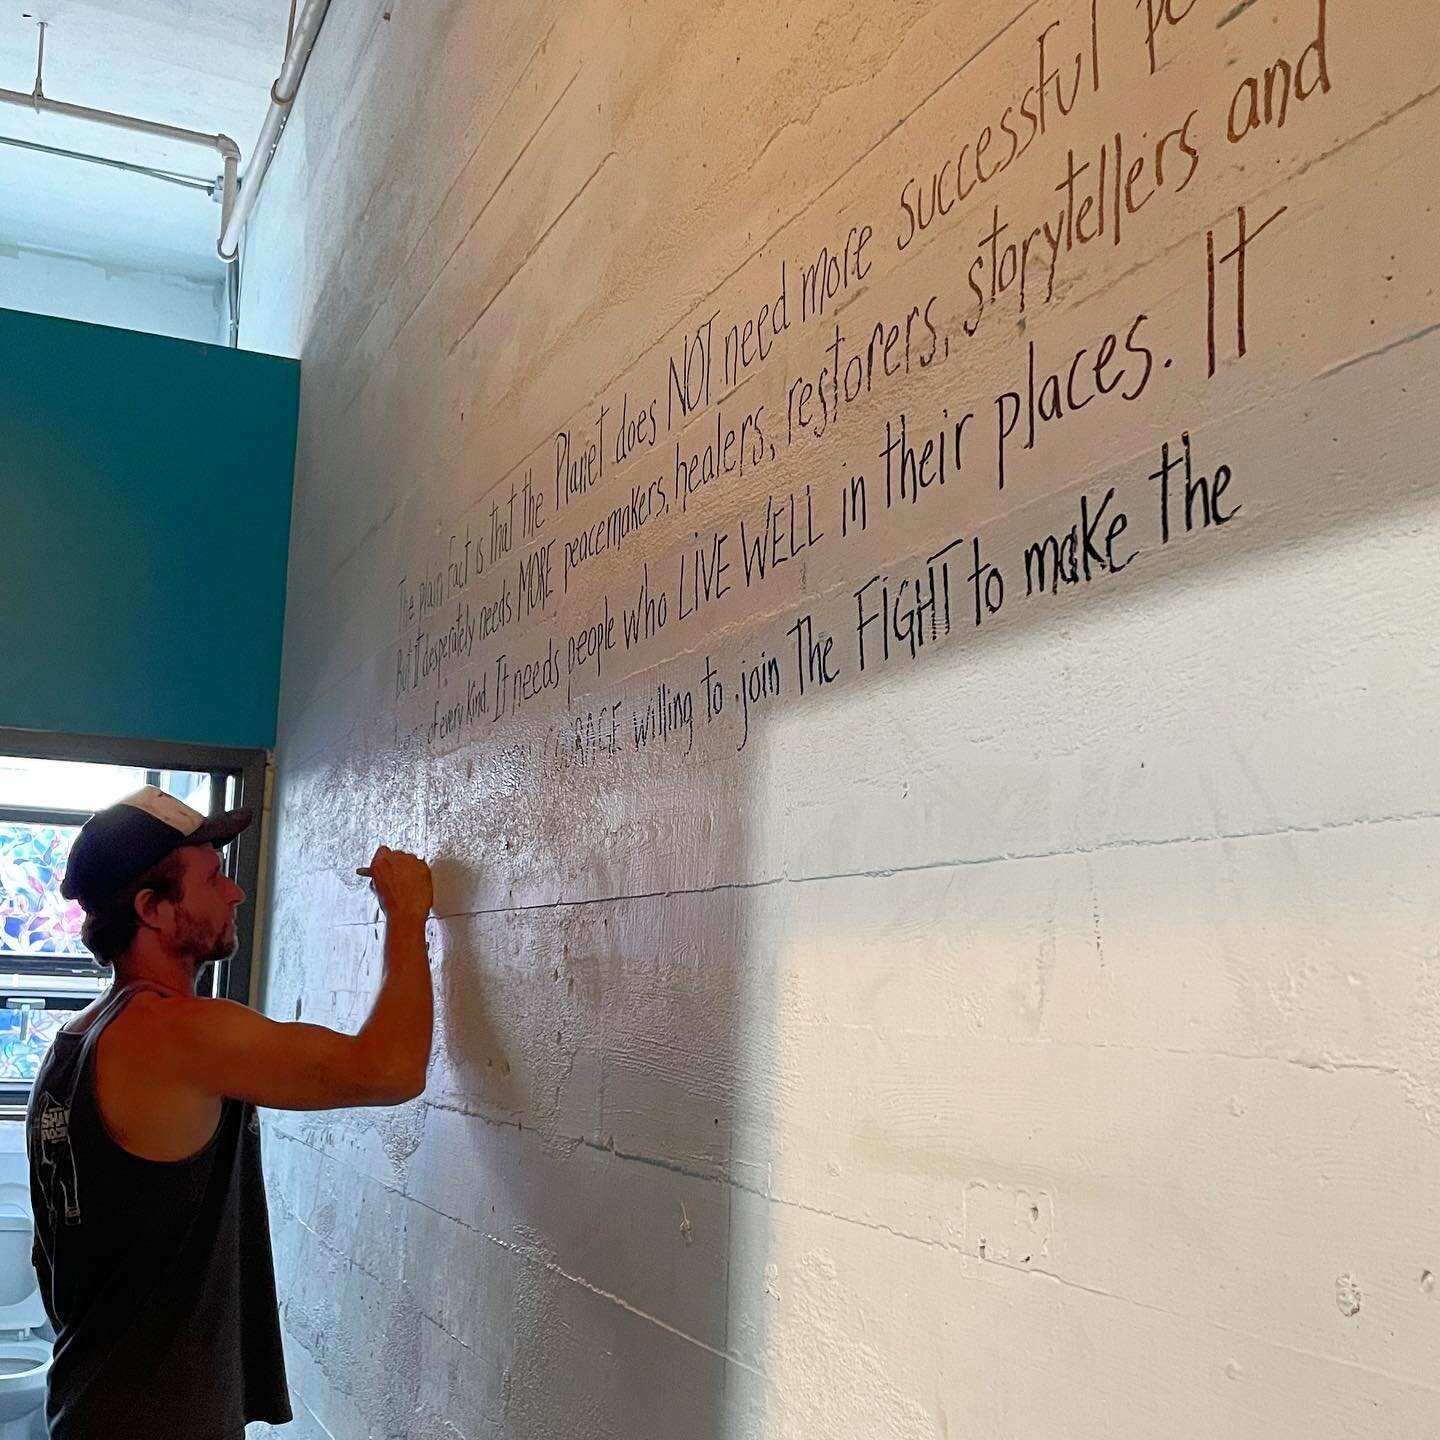 The plain fact is that the Planet does NOT need more successful
But IT desperately needs MORE peacemakers, healers, restorers, storytellers and
of every kind. It needs people who LIVE WELL in their places. IT
COURAGE willing to join The FIGHT to make the